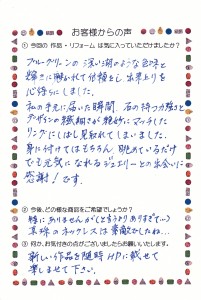 お客様からの声
① 今回の 作品・リフォーム は気に入っていただけましたか？
ブルーグリーンの深い湖のような色味と
輝きに魅かれて依頼をし、出来上りを
心待ちにしました。
私の手元に届いた瞬間、石の持つ力強さと
デザインの繊細さが絶妙にマッチした
リングにしばし見釈れてしまいました。
身に付けてはもちろん、眺めているだけ
でも元気になれるジュエリーとの出会いに
感謝！です。
② 今後、どの様な商品をご希望でしょうか？
特にありませんが(と言うよりありすぎて…)
真珠のネックレスは素敵でしたね…
③ 何か、お気付きの点がございましたらお願いいたします。
新しい作品を随時HPに載せて
楽しませて下さい。